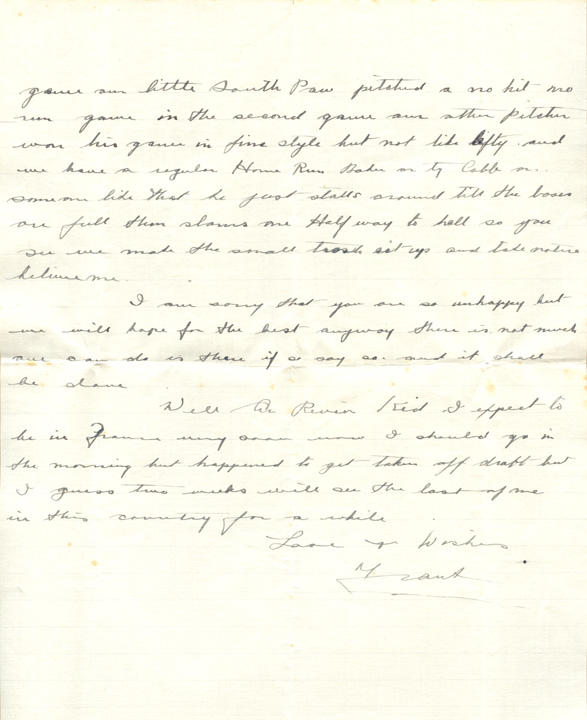 game our little South Paw pitched a no hit no
run game in the second game our other Pitcher
won his game in fine style but not like lefty. and
we have a regular Home Run Baker or ty Cobb or
someone like that he just stalls around till the bases
are full then slams one Half way to hell so you
see we made the small trash sit up and take notice
believe me.
I am sorry that you are so unhappy but
we will hope for the best anyway there is not much
one can do is there if so say so. and it shall
be done
Well Au Revior Kid I expect to
be in France very soon now I should go in
the morning but happened to get taken off draft but
I guess two weeks will see the last of me
in this country for a while
Love & Wishes